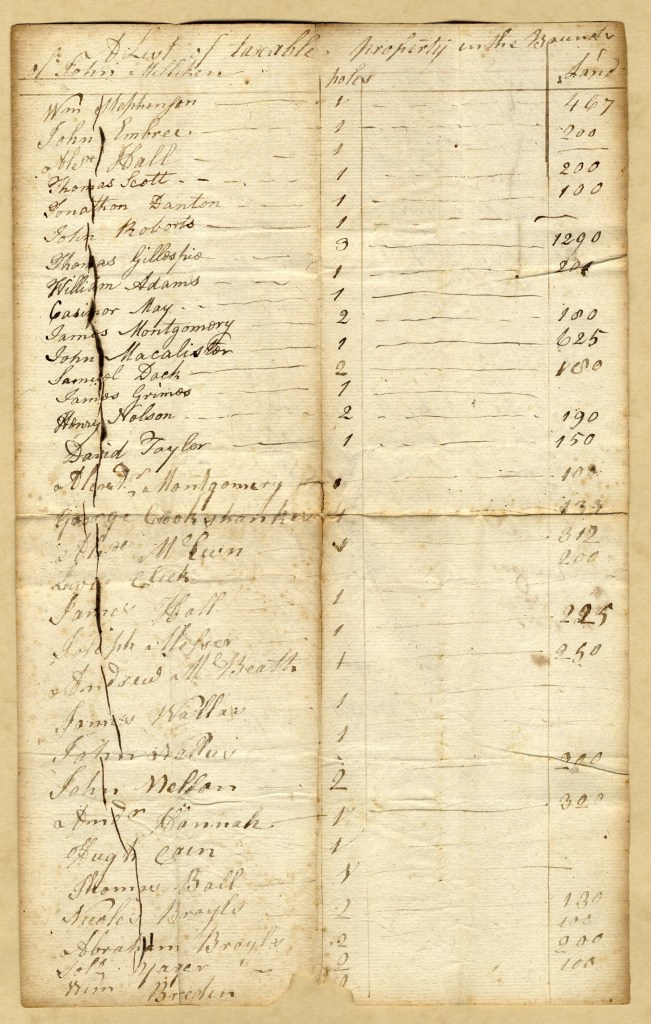 A List of taxable property in the Bounds
of John Milliken poles Land
Wm Stephenson 1 467
John Embree 1 200
Alexr Hall 1 200
Thomas Scott 100
Jonathon Danton 1
John Roberts 1
Thomas Gillespie 3 1290
William Adams 1 200
Casimor May 1
James Montgomery 2 180
John Macalister 1 625
Samuel Dack 2 180
James Grimes 1
Henry Nolson 2 190
David Taylor 1 150
Alexdr Montgomery 1 100
George Cookshankes 4 133
Alexr 1 312
Lewis Click 200
James Hall 1 225
Joseph Messer 1 250
Andrew McBeath 1
James Wallas 1
John Wallas 1
John Nelson 2 200
Andr Hannah 1 320
Hugh Cain 1
Thomas Ball 1
Nicoles Broyls 2 130
100
Abraham Broyls 2 200
Soln Yager 2 100
Wm Breden 0